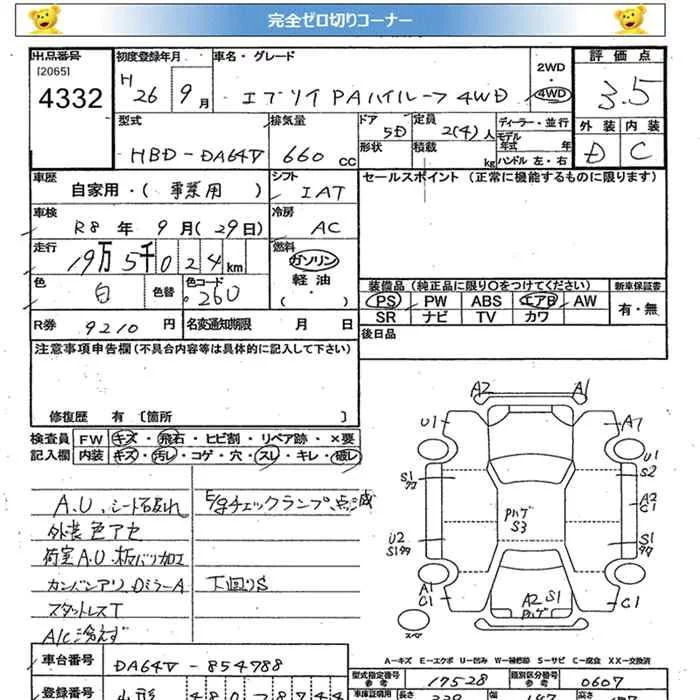 完全ゼロ切りコーナー
出品番号
[2065]
4332
初度登録年月
H26年 9月
車名・グレード
エブリイ PAハイルーフ 4WD
2WD
・
4WD
評価点
3.5
型式
HBD-DA64V
排気量
660 cc
ドア
5D
形状
定員
2(4)人
積載
kg
ディーラー・並行
モデル年式 年
ハンドル 左・右
外装 内装
D C
車歴
自家用・(事業用)
シフト
IAT
セールスポイント (正常に機能するものに限ります)
車検
R8年 9月(29日)
冷房
AC
走行
19万5千024km
燃料
ガソリン
軽油
・( )
色
白
色替
色コード
26U
装備品 (純正品に限り〇をつけてください) 新車保証書
PS PW ABS エアB AW
SR ナビ TV カワ
有・無
R券 9210 円
名変通知期限 月 日
後日品
注意事項申告欄(不具合内容等は具体的に記入して下さい)
修復歴 有 [箇所 ]
検査員 FW キズ・飛石・ヒビ割・リペア跡・×要
記入欄 内装 キズ・汚レ・コゲ・穴・スレ・キレ・破レ
A.U、シート破れ
E/gチェックランプ、点滅
外装色アセ
荷室A.U・板バリ加工
カンバンアリ、DミラーA
下回りS
スタットレスT
A/C冷えず
A2 A1
U1 A7
U1
S1
S2
A2
C1
Pハゲ
S3
U2
S1
S1
A1
C1
A2 S1
Pハゲ
C1
スペア
A―キズ E―エクボ U―凹み W―補修跡 S―サビ C―腐食 XX―交換済
車台番号 DA64V - 854788
型式指定番号 参考 17528
類別区分番号 参考 0607
登録番号
車庫証明用
長さ